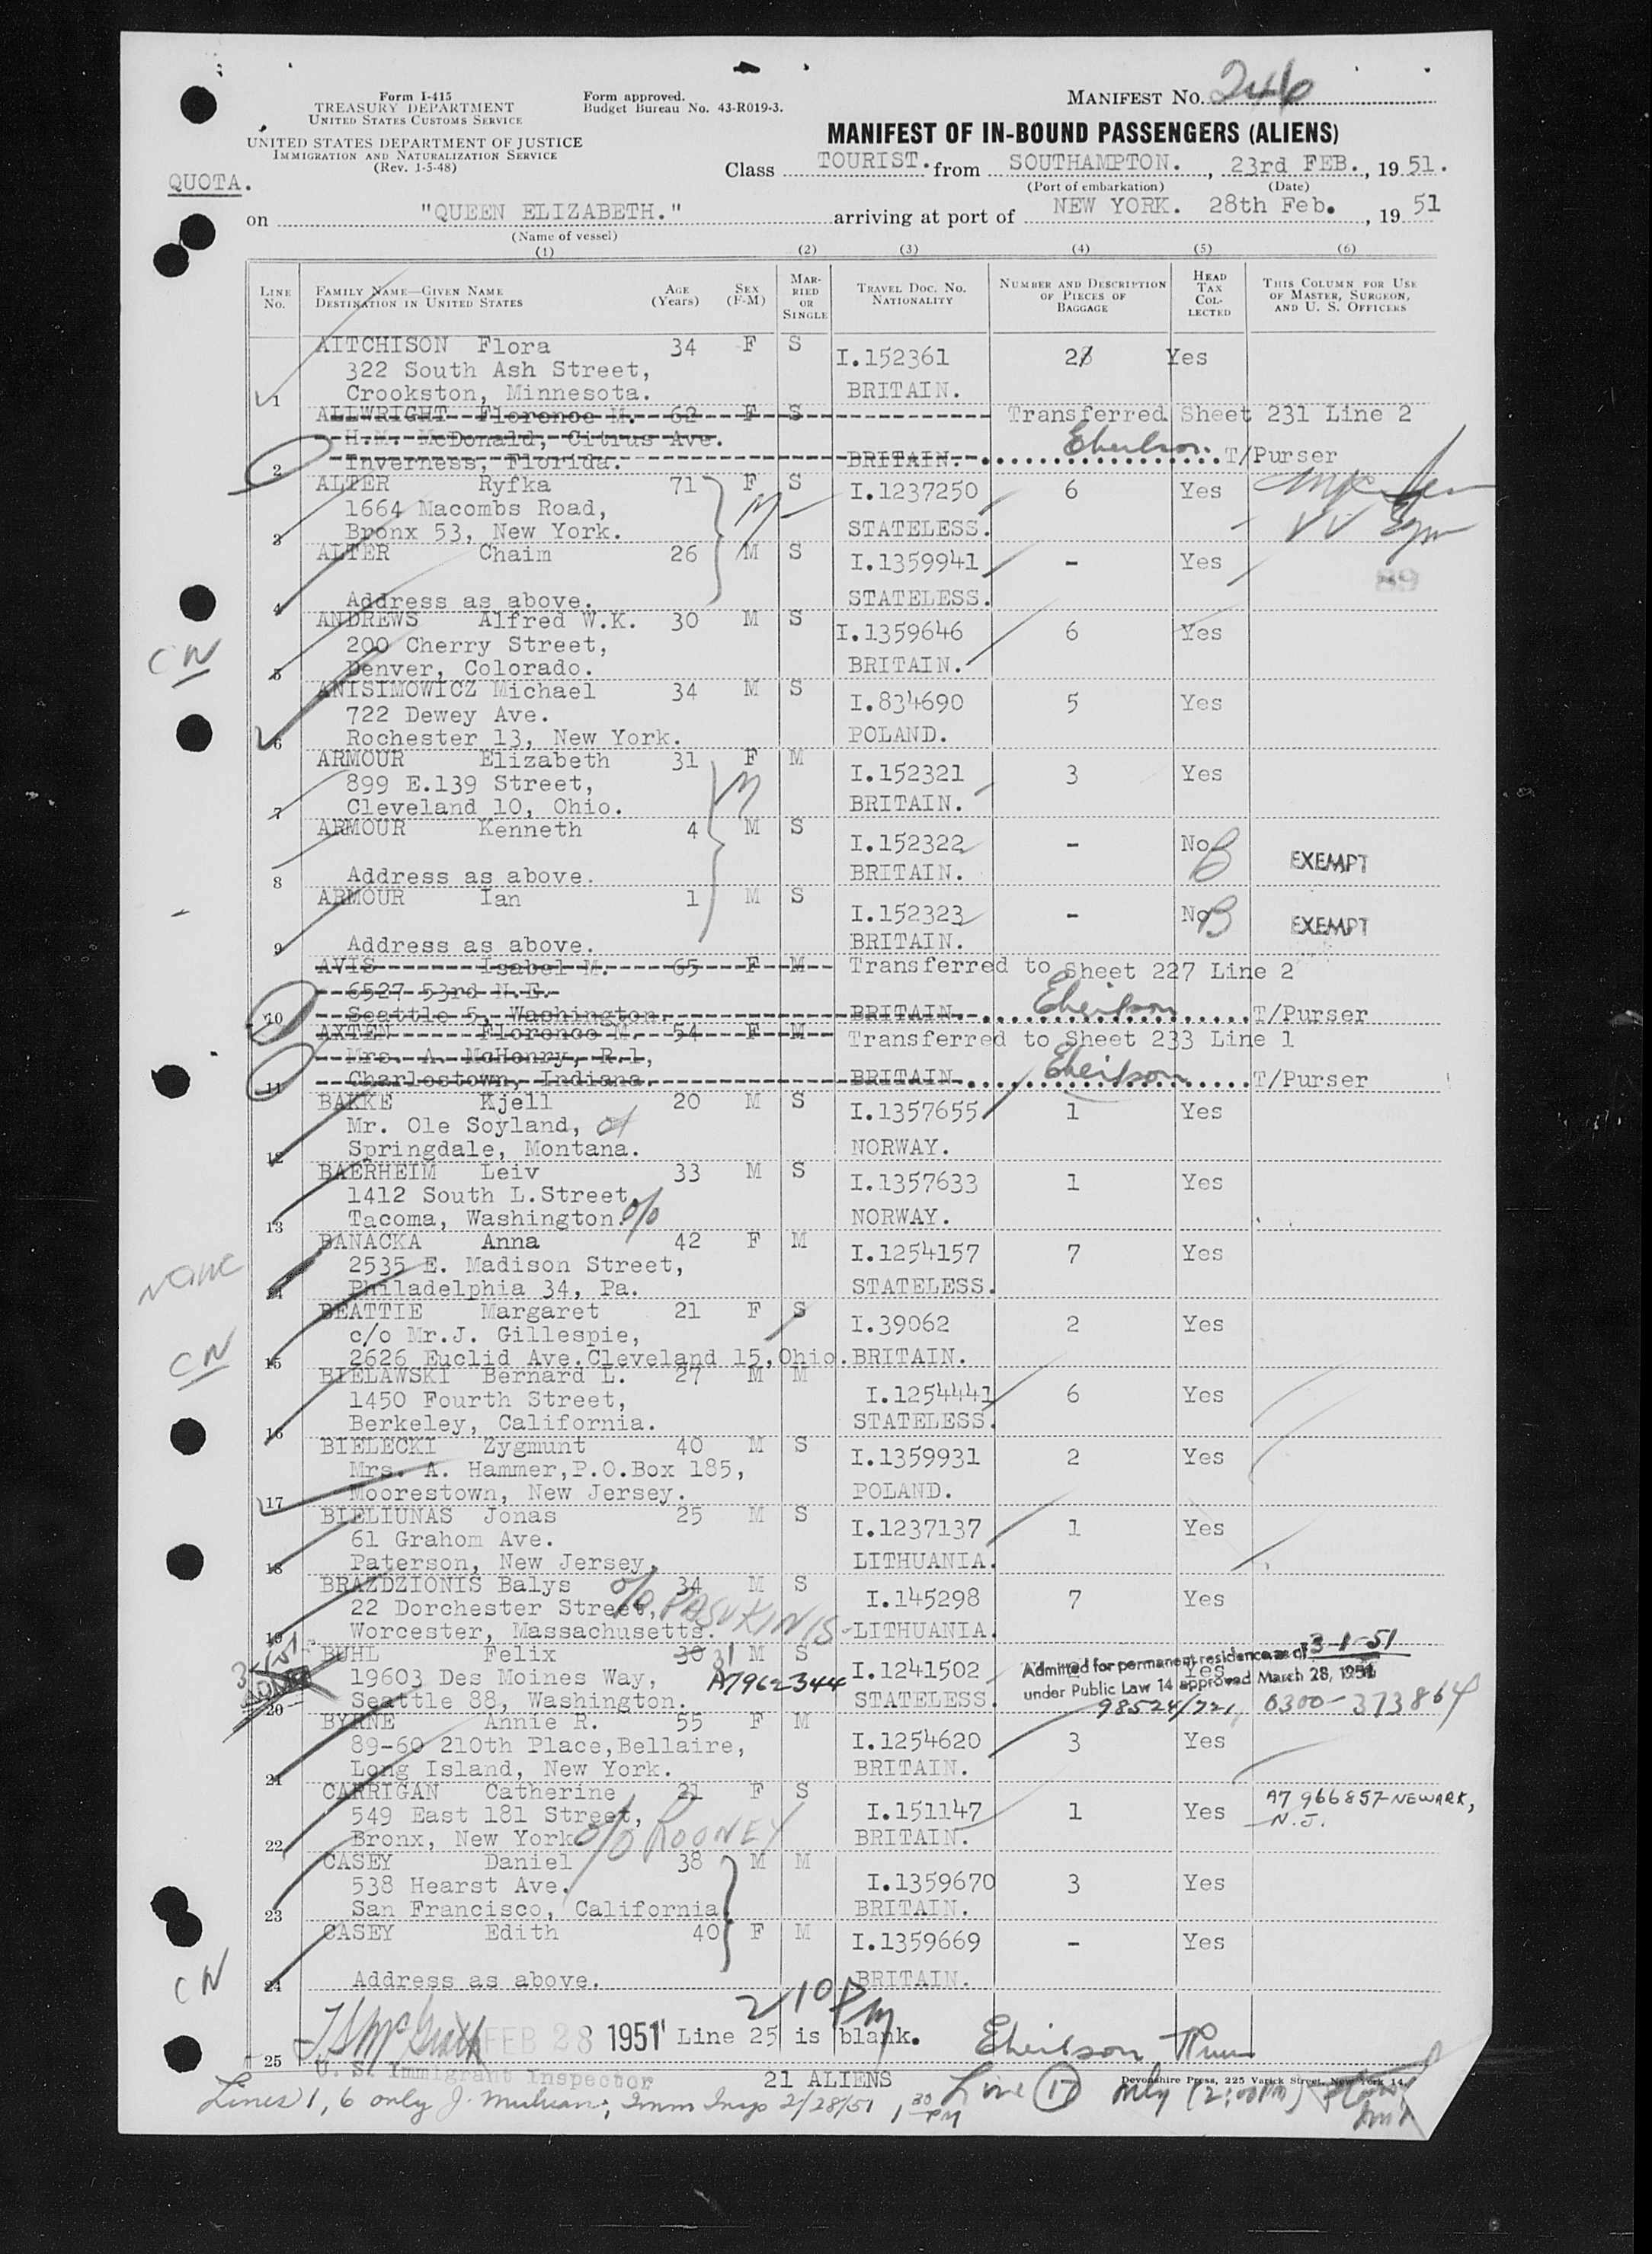 Form I-415
TREASURY DEPARTMENT
UNITED STATES CUSTOMS SERVICE
UNITED STATES DEPARTMENT OF JUSTICE
IMMIGRATION AND NATURALIZATION SERVICE
(Rev. 1-5-48)
Form approved.
Budget Bureau No. 43-R019-3.
MANIFEST No. 246
MANIFEST OF IN-BOUND PASSENGERS (ALIENS)
QUOTA.
Class TOURIST. from SOUTHAMPTON. , 23rd FEB. , 19 51.
(Port of embarkation) (Date)
on "QUEEN ELIZABETH." arriving at port of NEW YORK. 28th Feb. , 19 51
(Name of vessel)
(1) (2) (3) (4) (5) (6)
LINE No. FAMILY NAME—GIVEN NAME DESTINATION IN UNITED STATES AGE (Years) SEX (F-M) MARRIED OR SINGLE TRAVEL DOC. NO. NATIONALITY NUMBER AND DESCRIPTION OF PIECES OF BAGGAGE HEAD TAX COLLECTED THIS COLUMN FOR USE OF MASTER, SURGEON, AND U. S. OFFICERS
AITCHISON Flora 34 F S I.152361 2 Yes
322 South Ash Street,
1 Crookston, Minnesota. BRITAIN.
ALLWRIGHT Florence M. 62 F S Transferred Sheet 231 Line 2
H.M. McDonald, Citrus Ave.
2 Inverness, Florida. BRITAIN. T/Purser
ALTER Ryfka 71 F S I.1237250 6 Yes
1664 Macombs Road,
3 Bronx 53, New York. STATELESS.
ALTER Chaim 26 M S I.1359941 - Yes
4 Address as above. STATELESS.
ANDREWS Alfred W.K. 30 M S I.1359646 6 Yes
200 Cherry Street,
CN 5 Denver, Colorado. BRITAIN.
ANISIMOWICZ Michael 34 M S I.834690 5 Yes
722 Dewey Ave.
6 Rochester 13, New York. POLAND.
ARMOUR Elizabeth 31 F M I.152321 3 Yes
899 E.139 Street,
7 Cleveland 10, Ohio. BRITAIN.
ARMOUR Kenneth 4 M S I.152322 - No EXEMPT
8 Address as above. BRITAIN.
ARMOUR Ian 1 M S I.152323 - No EXEMPT
9 Address as above. BRITAIN.
AVIS Isabel M. 65 F M Transferred to Sheet 227 Line 2
6527 53rd N.E.
10 Seattle 5, Washington. BRITAIN. T/Purser
AXTEN Florence M. 54 F M Transferred to Sheet 233 Line 1
Mrs. A. McHenry, R.1,
11 Charlestown, Indiana. BRITAIN. T/Purser
BAKKE Kjell 20 M S I.1357655 1 Yes
Mr. Ole Soyland,
12 Springdale, Montana. NORWAY.
BAERHEIM Leiv 33 M S I.1357633 1 Yes
1412 South L.Street,
13 Tacoma, Washington. NORWAY.
BANACKA Anna 42 F M I.1254157 7 Yes
name 2535 E. Madison Street,
14 Philadelphia 34, Pa. STATELESS.
BEATTIE Margaret 21 F S I.39062 2 Yes
c/o Mr.J. Gillespie,
CN 15 2626 Euclid Ave.Cleveland 15,Ohio. BRITAIN.
BIELAWSKI Bernard L. 27 M M I.1254441 6 Yes
1450 Fourth Street,
16 Berkeley, California. STATELESS.
BIELECKI Zygmunt 40 M S I.1359931 2 Yes
Mrs. A. Hammer,P.O.Box 185,
17 Moorestown, New Jersey. POLAND.
BIELIUNAS Jonas 25 M S I.1237137 1 Yes
61 Grahom Ave.
18 Paterson, New Jersey. LITHUANIA.
BRAZDZIONIS Balys 34 M S I.145298 7 Yes
22 Dorchester Street, c/o PASUKINIS
19 Worcester, Massachusetts. LITHUANIA.
BUHL Felix 30 31 M S I.1241502 Yes Admitted for permanent residence as of 3-1-51
19603 Des Moines Way, A7962344 under Public Law 14 approved March 28, 1951
20 Seattle 88, Washington. STATELESS. 98524/721, 0300-373864
BYRNE Annie R. 55 F M I.1254620 3 Yes
89-60 210th Place,Bellaire,
21 Long Island, New York. BRITAIN.
CARRIGAN Catherine 21 F S I.151147 1 Yes A7 966857 NEWARK, N.J.
549 East 181 Street,
22 Bronx, New York c/o ROONEY BRITAIN.
CASEY Daniel 38 M M I.1359670 3 Yes
538 Hearst Ave.
23 San Francisco, California BRITAIN.
CASEY Edith 40 F M I.1359669 - Yes
CN 24 Address as above. BRITAIN.
2 10 PM
25 FEB 28 1951 Line 25 is blank.
U. S. Immigrant Inspector 21 ALIENS Devonshire Press, 225 Varick Street, New York 14,
Lines 1, 6 only Imm Insp 2/28/51 1 30 PM Line 17 only (2:00PM)